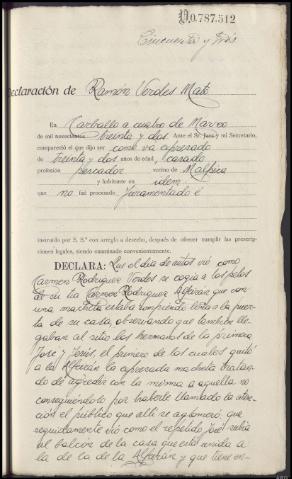 0.787.512
Cincuenta y tres
Declaración de Ramón Verdes Mato
En Carballo a cuatro de Marzo
de mil novecientos treinta y dos. Ante el Sr. Juez y mi Secretario,
compareció el que dijo ser como va expresado
de treinta y dos años de edad, casado
profesión pescador vecino de Malpica
y habitante en idem
que no fué procesado. Juramentado é
instruído por S. S.ª con arreglo a derecho, después de ofrecer cumplir las prescrip-
ciones legales, siendo examinado convenientemente.
DECLARA: Que el dia de autos vió como
Carmen Rodriguez Verdes se cogia a los pelos
de su tia Carmen Rodriguez Alfarán que con
una macheta estaba rompiendo leña a la puer-
ta de su casa, observando que tambien lle-
gaban al sitio los hermanos de la primera
José y Jesús, el primero de los cuales quitó
a la Alfarán la expresada macheta tratan-
do de agredir con la misma a aquella no
consiguiéndolo por haberle llamado la aten-
ción el público que alli se aglomeró, que
seguidamente vió como el repetido José subia
al balcón de la casa que está unida a
la de la de la Alfarán y que tiene en-